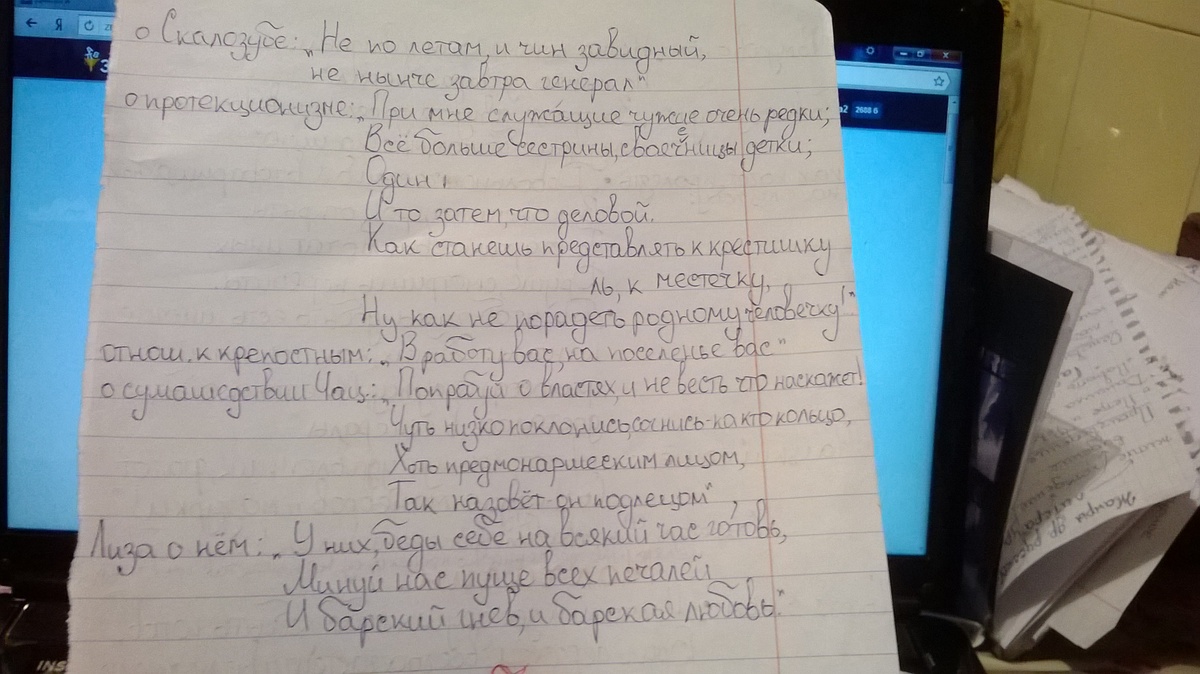 о Скалозубе: „Не по летам, и чин завидный,
не нынче завтра генерал"
о протекционизме: „При мне служащие чужие очень редки;
Всё больше сестрины, свояченицы детки;
Один,
И то затем, что деловой.
Как станешь представлять к крестишку
ль, к местечку,
Ну как не порадеть родному человечку!"
отнош. к крепостным: „В работу вас, на поселенье вас"
о сумашедствии Чац.: „Попробуй о властях, и невесть что наскажет!
Чуть низко поклонись, согнись-ка кто кольцо,
Хоть пред монаршеским лицом,
Так назовёт он подлецом",
Лиза о нём: „У них, беды себе на всякий час готовь,
Минуй нас пуще всех печалей
И барский гнев, и барская любовь."
Жанры др. русской
литературы
2688 б
INS